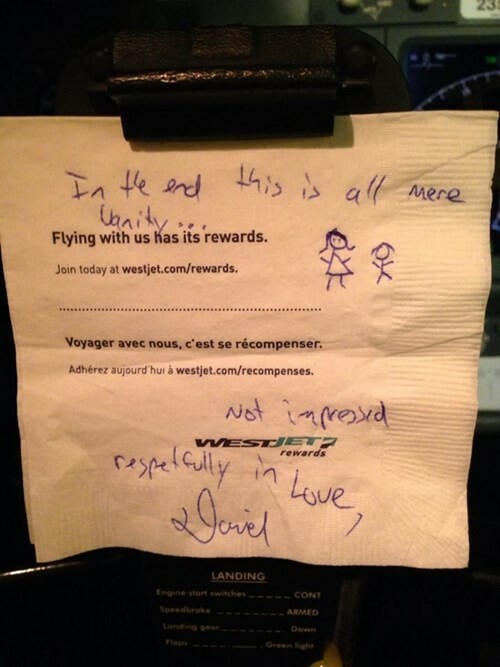 23
In the end this is all mere
Vanity...
Flying with us has its rewards.
Join today at westjet.com/rewards.
Voyager avec nous, c'est se récompenser.
Adhérez aujourd'hui à westjet.com/recompenses.
Not impressed
WESTJET
rewards
respetfully in Love,
David
LANDING
Engine start switches _ _ _ _ _ CONT
Speedbrake _ _ _ _ _ ARMED
Landing gear _ _ _ _ _ Down
Flaps _ _ _ _ _ Green light